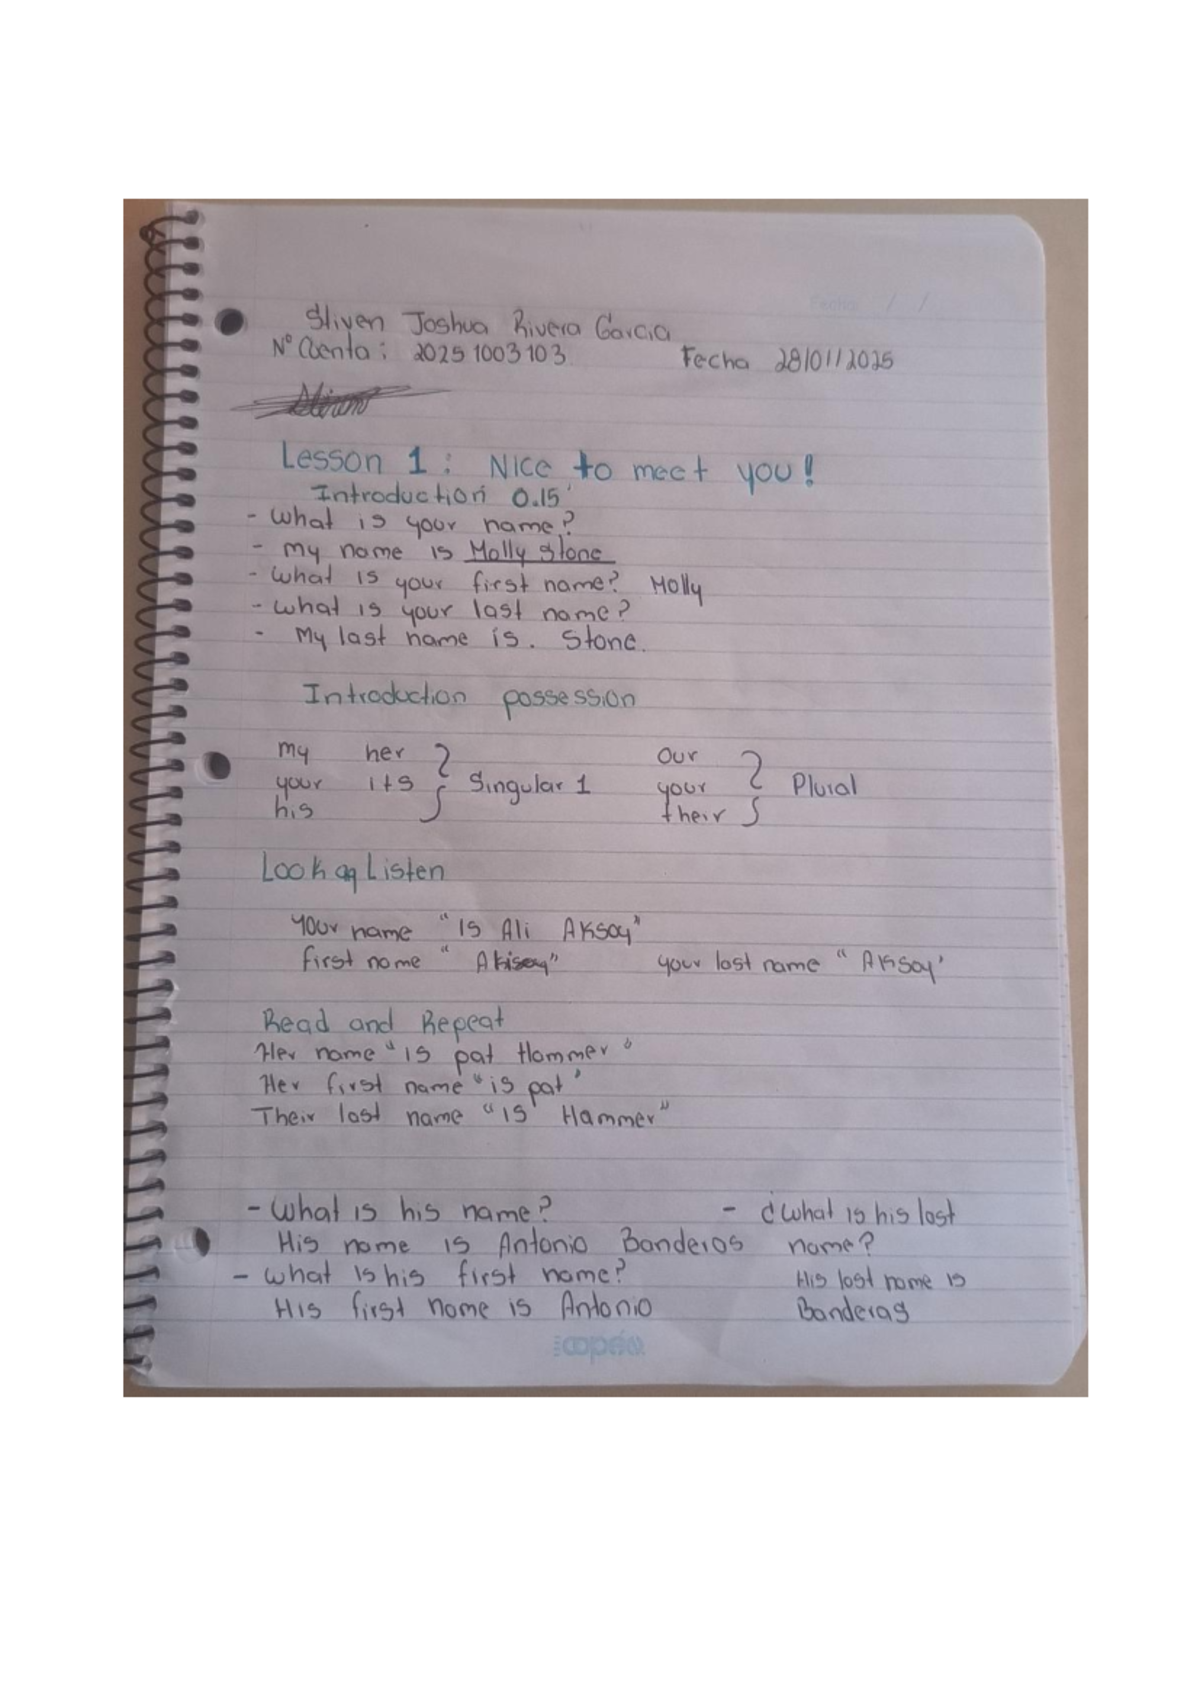 Stiven Joshua Rivera Garcia
N° Cuenta: 20251003103 Fecha 28/01/2025
Lesson 1: Nice to meet you!
Introduction 0.15
- What is your name?
- my name is Molly Stone
- What is your first name? Molly
- What is your last name?
- My last name is. Stone.
Introduction possession
my her
your its Singular 1
his
Our
your Plural
their
Look Listen
Your name "is Ali Aksoy"
first name " your last name " Aksoy'
Read and Repeat
Her name "is pat Hammer"
Her first name "is pat'
Their last name "is Hammer"
- What is his name?
His name is Antonio Banderos
- what is his first name?
His first name is Antonio
- ¿What is his last
name?
His last name is
Banderas
copán